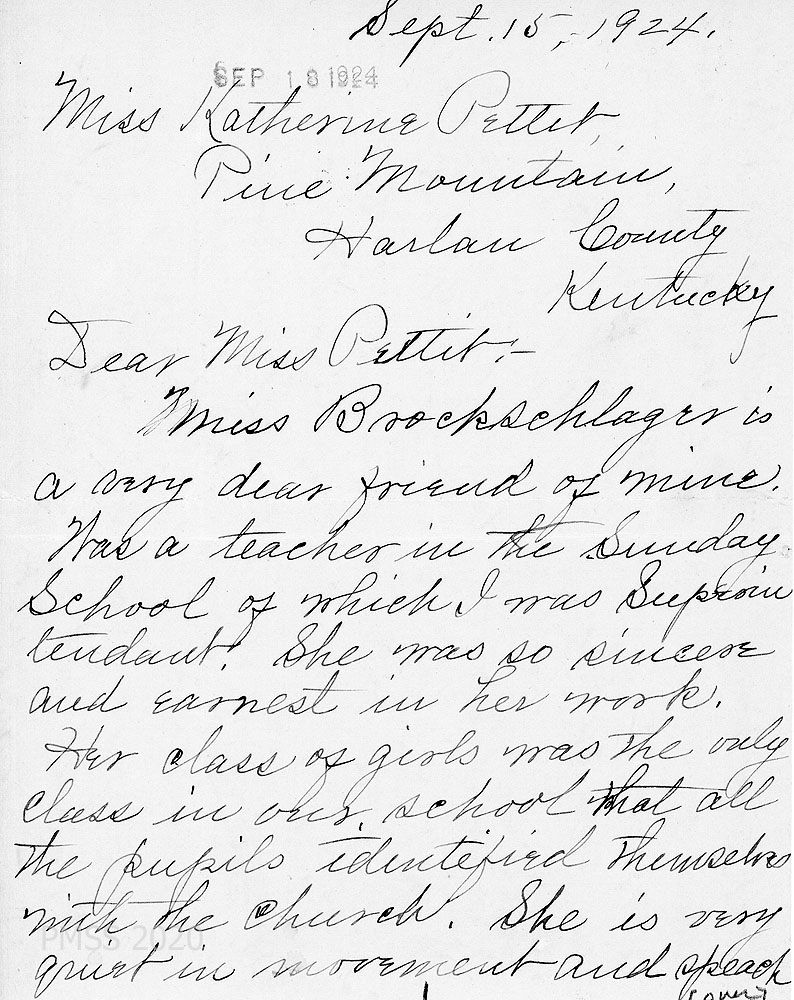 Sept. 15, 1924.
SEP 18 1924
Miss Katherine Pettit,
Pine Mountain,
Harlan County
Kentucky
Dear Miss Pettit:-
Miss Brockschlager is
a very dear friend of mine.
Was a teacher in the Sunday
School of which I was Superin
tendant. She was so sincere
and earnest in her work.
Her class of girls was the only
class in our school that all
the pupils identified themselves
with the church. She is very
quiet in movement and speach
(over)
PMSS 2020